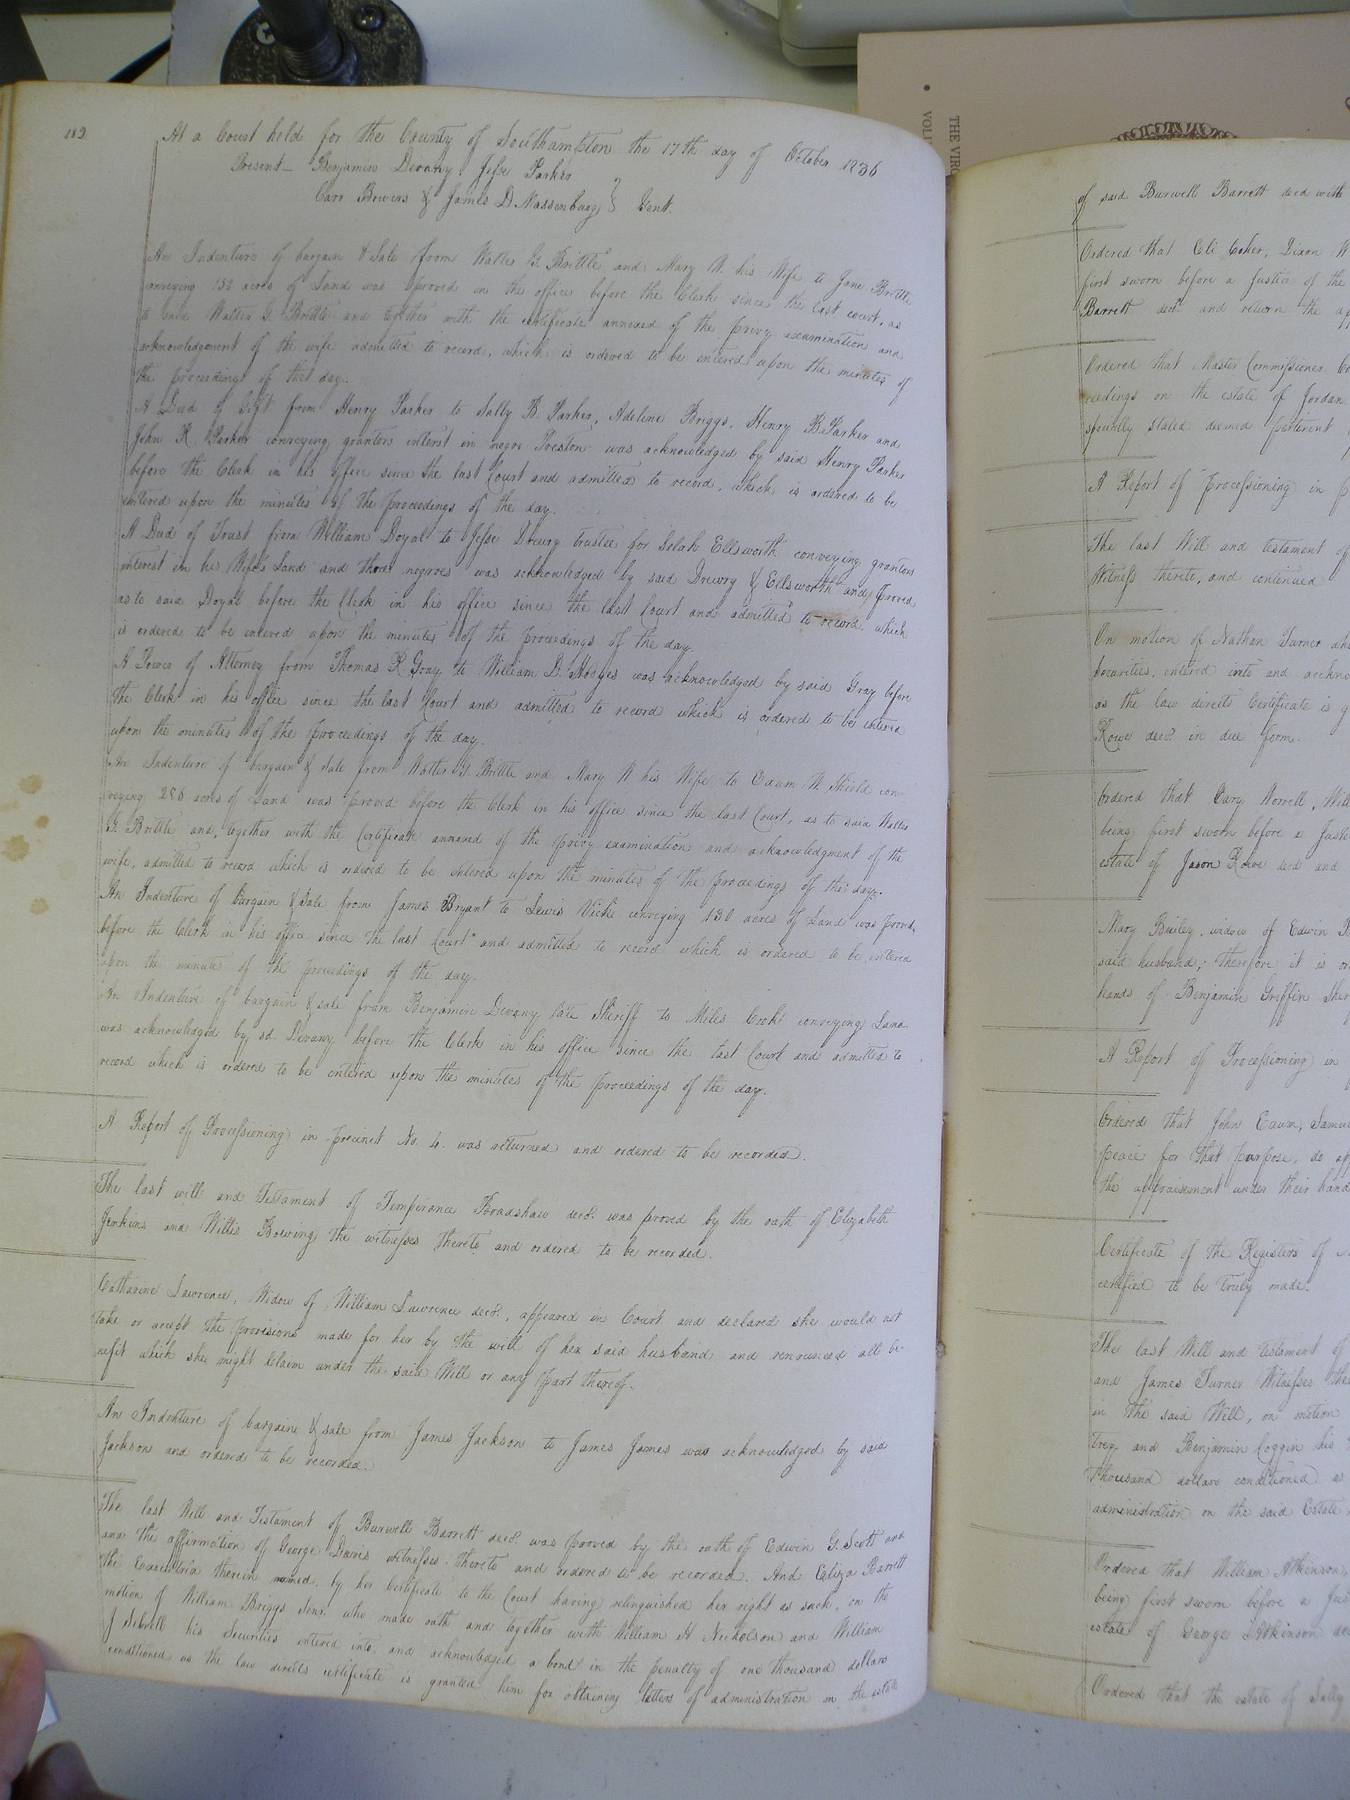 182
At a Court held for the County of Southampton the 17th day of October 1836
Present Benjamin Devany, Jesse Parker
Carr Bowers & James D Massenburg } Gent.
An Indenture of bargain & Sale from Walter G. Brittle and Mary N. his Wife to Jane Brittle
conveying 152 acres of Land was proved in the office before the Clerk since the last court, as
to said Walter G. Brittle and together with the certificate annexed of the privy examination and
acknowledgement of the wife admitted to record, which is ordered to be entered upon the minutes of
the proceedings of the day.
A Deed of Gift from Henry Parker to Sally B. Parker, Adeline Briggs, Henry B. Parker and
John R. Parker conveying grantors interest in negro Preston was acknowledged by said Henry Parker
before the Clerk in his office since the last Court and admitted to record, which is ordered to be
entered upon the minutes of the proceedings of the day.
A Deed of Trust from William Doyal to Jesse Drewry trustee for Selah Ellsworth conveying grantors
interest in his Wife's Land and three negroes was acknowledged by said Drewry & Ellsworth and proved
as to said Doyal before the Clerk in his office since the last Court and admitted to record which
is ordered to be entered upon the minutes of the proceedings of the day.
A Power of Attorney from Thomas R Gray to William D. Hodges was acknowledged by said Gray before
the Clerk in his office since the last Court and admitted to record which is ordered to be entered
upon the minutes of the proceedings of the day.
An Indenture of bargain & sale from Walter G Brittle and Mary N his Wife to Eaum N Shield con-
veying 256 acres of Land was proved before the Clerk in his office since the last Court, as to said Walter
G. Brittle and, together with the Certificate annexed of the privy examination and acknowledgment of the
wife, admitted to record which is ordered to be entered upon the minutes of the proceedings of the day.
An Indenture of bargain & Sale from James Bryant to Lewis Vick conveying 130 acres of Land was proved
before the Clerk in his office since the last Court and admitted to record which is ordered to be entered
upon the minutes of the proceedings of the day.
An Indenture of bargain & sale from Benjamin Devany late Sheriff to Miles Cook conveying Land
was acknowledged by sd. Devany before the Clerk in his office since the last Court and admitted to
record which is ordered to be entered upon the minutes of the proceedings of the day.
A Report of Processioning in precinct No. 4. was returned and ordered to be recorded.
The last will and Testament of Temperance Bradshaw decd. was proved by the oath of Elizabeth
Jenkins and Willis Bowing the witnesses thereto and ordered to be recorded.
Catharine Lawrence, Widow of William Lawrence decd., appeared in Court and declared she would not
take or accept the provisions made for her by the will of her said husband and renounced all be-
nefit which she might claim under the said Will or any part thereof.
An Indenture of bargain & sale from James Jackson to James James was acknowledged by said
Jackson and ordered to be recorded.
The last Will and Testament of Burwell Barrett decd. was proved by the oath of Edwin G. Scott and
and the affirmation of George Davis witnesses thereto and ordered to be recorded. And Eliza Barrett
the Executrix therein named, by her Certificate to the Court having relinquished her right as such, on the
motion of William Briggs Senr. who made oath and together with William H Nicholson and William
J Sebrell his Securities entered into and acknowledged a bond in the penalty of one thousand dollars
conditioned as the law directs certificate is granted him for obtaining letters of administration on the estate
of said Burwell Barrett decd with
Ordered that Eli Coker, Dixon W
first sworn before a Justice of the
Barrett decd. and return the ap
Ordered that Master Commissioner
ceedings on the estate of Jordan
specially stated deemed pertinent
A Report of Processioning in p
The last Will and testament of
Witness thereto, and continued
On motion of Nathan Turner who
Securities, entered into and ackno
as the law directs Certificate is g
Rowe decd. in due form.
Ordered that Cary Norvell, Will
being first sworn before a Justi
estate of Jason Rowe decd and
Mary Bailey, widow of Edwin B
said husband; therefore it is or
hands of Benjamin Griffin Sher
A Report of Processioning in
Ordered that John Eaum, Samu
peace for that purpose, do ap
the appraisement under their hand
Certificate of the Registers of
certified to be truly made.
The last Will and testament of
and James Turner Witnesses the
in the said Will, on motion
trey, and Benjamin Coggin his
thousand dollars conditioned as
administration on the said Estate
Ordered that William Atkinson,
being first sworn before a Jus
estate of George Atkinson de
Ordered that the estate of Sally
THE VIRG
VOLU